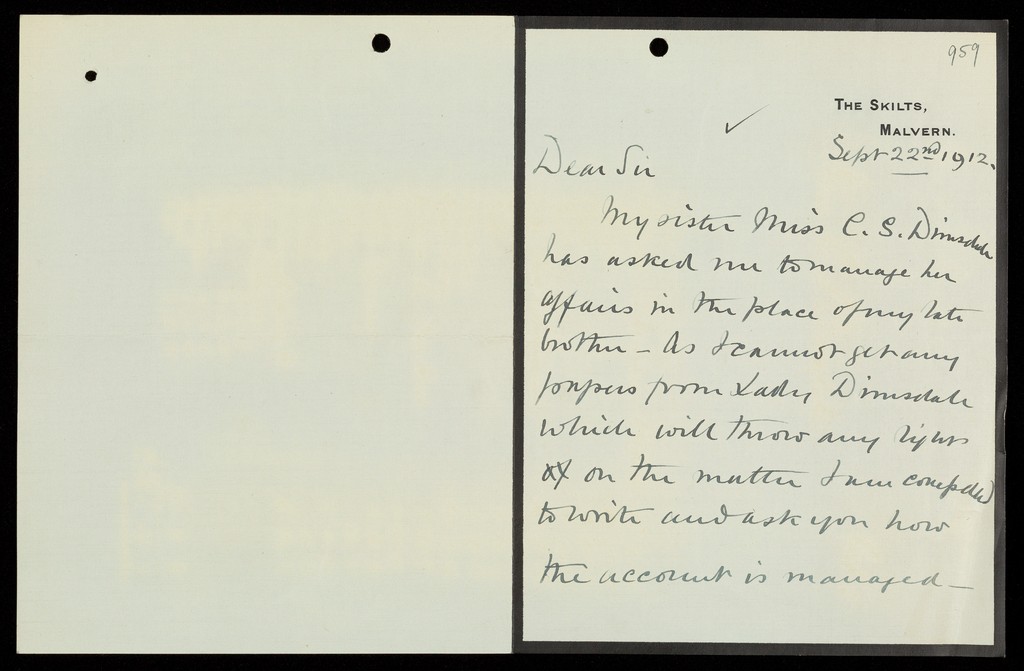 959
THE SKILTS,
MALVERN.
Sept 22nd 1912.
Dear Sir
My sister Miss C. S. Dimsdale
has asked me to manage her
affairs in the place of my late
brother – As I cannot get any
papers from Lady Dimsdale
which will throw any light
on the matter I am compelled
to write and ask you how
the account is managed –